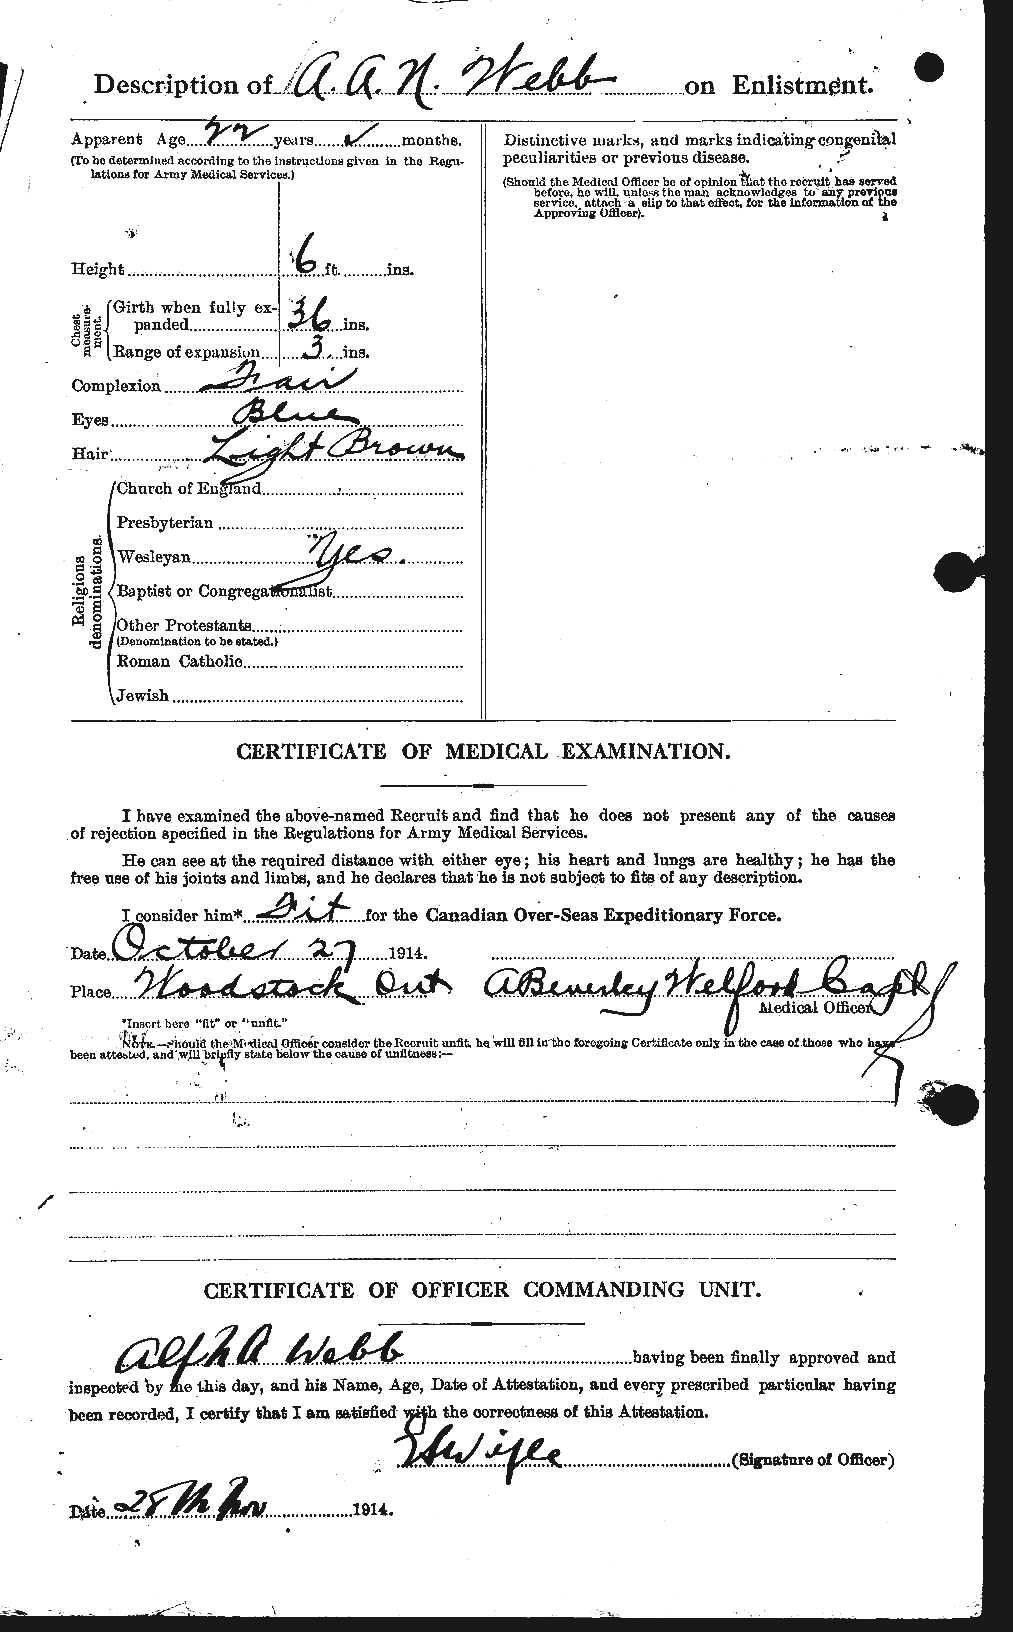 Description of A. A. N. Webb on Enlistment.
Apparent Age 22 years ✓ months.
(To be determined according to the instructions given in the Regu-
lations for Army Medical Services.)
Height 6 ft. ins.
Chest measure-ment.
Girth when fully ex-
panded 36 ins.
Range of expansion 3 ins.
Complexion Fair
Eyes Blue
Hair Light Brown
Religious denominations.
Church of England
Presbyterian
Wesleyan Yes.
Baptist or Congregationalist
Other Protestants
(Denomination to be stated.)
Roman Catholic
Jewish
Distinctive marks, and marks indicating congenital
peculiarities or previous disease.
(Should the Medical Officer be of opinion that the recruit has served
before, he will, unless the man acknowledges to any previous
service, attach a slip to that effect, for the information of the
Approving Officer).
CERTIFICATE OF MEDICAL EXAMINATION.
I have examined the above-named Recruit and find that he does not present any of the causes
of rejection specified in the Regulations for Army Medical Services.
He can see at the required distance with either eye; his heart and lungs are healthy; he has the
free use of his joints and limbs, and he declares that he is not subject to fits of any description.
I consider him* Fit for the Canadian Over-Seas Expeditionary Force.
Date October 27 1914.
Place Woodstock Ont A Beverley Welford Capt
Medical Officer
*Insert here "fit" or "unfit."
NOTE.—Should the Medical Officer consider the Recruit unfit, he will fill in the foregoing Certificate only in the case of those who have
been attested, and will briefly state below the cause of unfitness:—
CERTIFICATE OF OFFICER COMMANDING UNIT.
Alf N A Webb having been finally approved and
inspected by me this day, and his Name, Age, Date of Attestation, and every prescribed particular having
been recorded, I certify that I am satisfied with the correctness of this Attestation.
(Signature of Officer)
Date 28th Nov 1914.